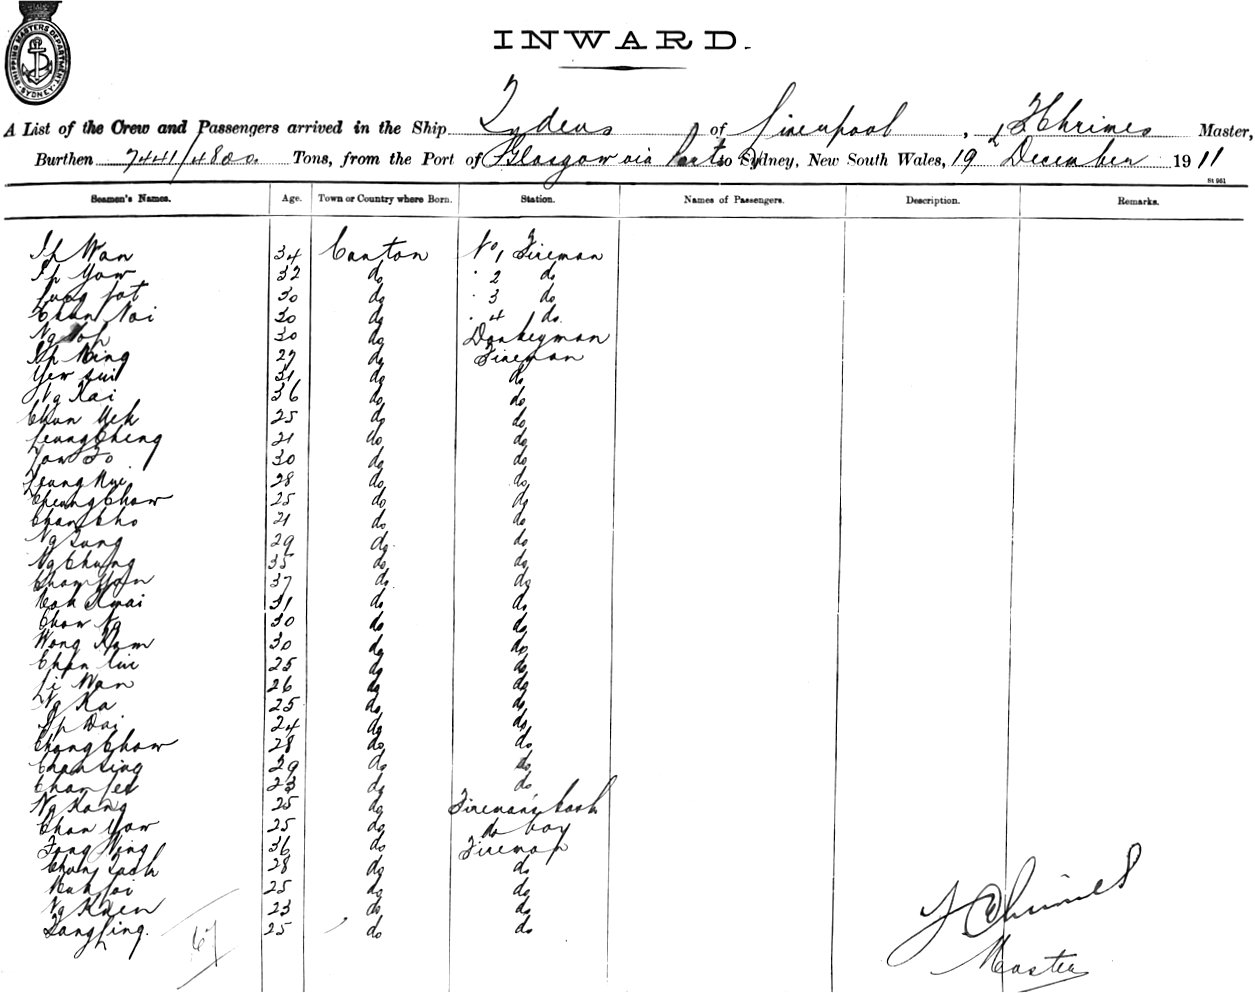 SHIPPING MASTERS DEPARTMENT SYDNEY
INWARD.
A List of the Crew and Passengers arrived in the Ship Tydeus of Liverpool, Chrimes Master,
Burthen 7441/4800. Tons, from the Port of Glasgow via Ports to Sydney, New South Wales, 19 December 1911
St 961
Seamen's Names. Age. Town or Country where Born. Station. Names of Passengers. Description. Remarks.
Ip Wan 34 Canton No 1 Fireman
Ip Yow 32 do " 2 do
Fung Fat 30 do " 3 do
Chan Noi 30 do " 4 do
Ng 30 do Donkeyman
Ip Ning 27 do Fireman
Yew 31 do do
Ng Kai 36 do do
Chan Yek 25 do do
Leung Cheng 21 do do
Yow So 30 do do
Leung Kui 28 do do
Cheung Chow 25 do do
Chan Cho 21 do do
Ng Sung 29 do do
Ng Chung 35 do do
Chan 37 do do
Kwai 31 do do
Chow Ng 30 do do
Wong Kam 30 do do
Chan Lui 25 do do
Li Wan 26 do do
Ng Ka 25 do do
Ip Dai 24 do do
Chong Chow 28 do do
Chan Sing 29 do do
Chan 23 do do
Ng Kong 25 do Fireman's Cook
Chan Yow 25 do do boy
Fong Ning 36 do Fireman
Chung 28 do do
25 do do
Ng 23 do do
25 do do
67
Chrimes
Master